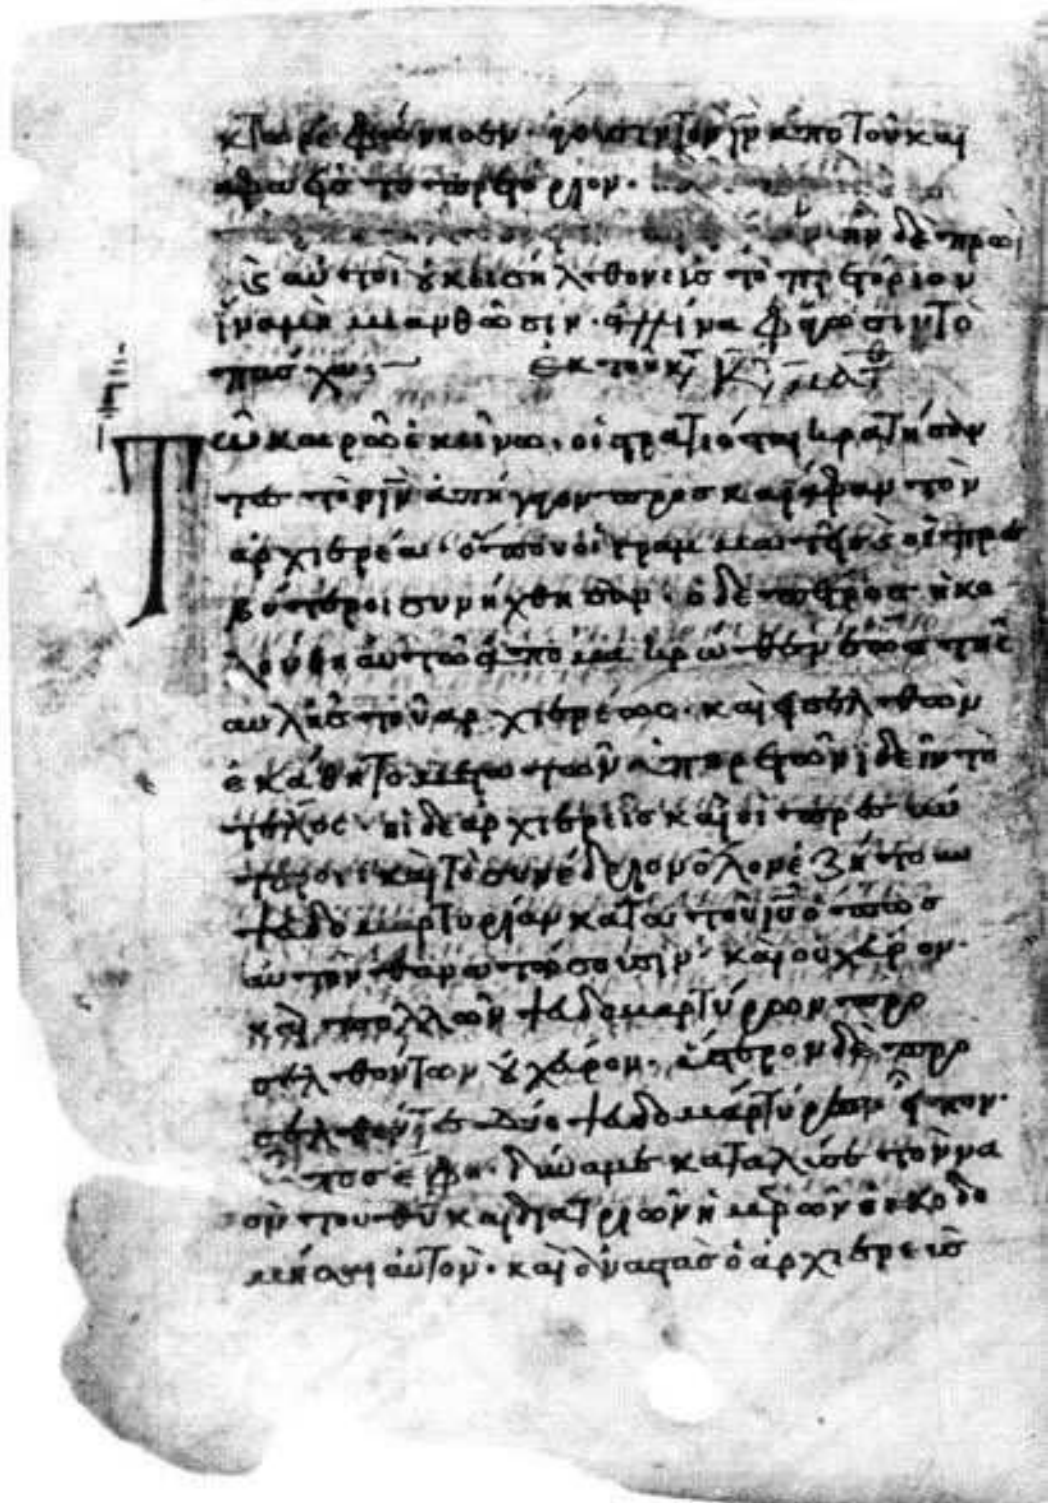 κτωρ ἐφώνησεν· ἄγουσιν τὸν ιν ἀπὸ τοῦ και
αφα εἰς το πρετοριον·
ἦν δὲ πρωῒ
ϗ αὐτοὶ οὐκ εισήλθον εἰς τὸ πρετόριον
ἵνα μὴ μιανθῶσιν· ἀλλ ἵνα φάγωσιν τὸ
πάσχα· ἐκ τοῦ κ
Τῶ καιρῶ ἐκείνω· οἱ στρατιόται κρατήσαν
τες τὸν ιν ἀπήγαγον προς καϊάφαν τὸν
ἀρχιερέα· ὅπου οἱ γραμματεῖς ϗ οἱ πρεσ
βύτεροι συνήχθησαν· ὁ δὲ πετρος ἠκο
λούθη αὐτῶ ἀπὸ μακρώθεν ἕως τῆς
αυλῆς τοῦ ἀρχιερέως· καὶ εἰσελθὼν
ἐκάθητο μετα τῶν ὑπηρετῶν ἰδεῖν τὸ
τέλος· οἱ δὲ ἀρχιερεῖς καὶ οἱ πρεσβύ
τεροι καὶ τὸ συνέδριον ὅλον ἐζήτουν
ψευδομαρτυρίαν κατα τοῦ ιυ ὅπως
αὐτὸν θανατώσουσιν· καὶ οὐχ εὗρον·
καὶ πολλῶν ψευδομαρτύρων προ
σελθόντων οὐχ εὗρον· ὕστερον δὲ προ
σελθόντες δύο ψευδομάρτυρες
οὗτος ἔφη· δύναμαι καταλύσαι τὸν να
ὸν του θυ καὶ δια τριῶν ἡμερῶν οἰκοδο
μήσαι αὐτόν· καὶ ἀναστὰς ὁ ἀρχιερεὺς